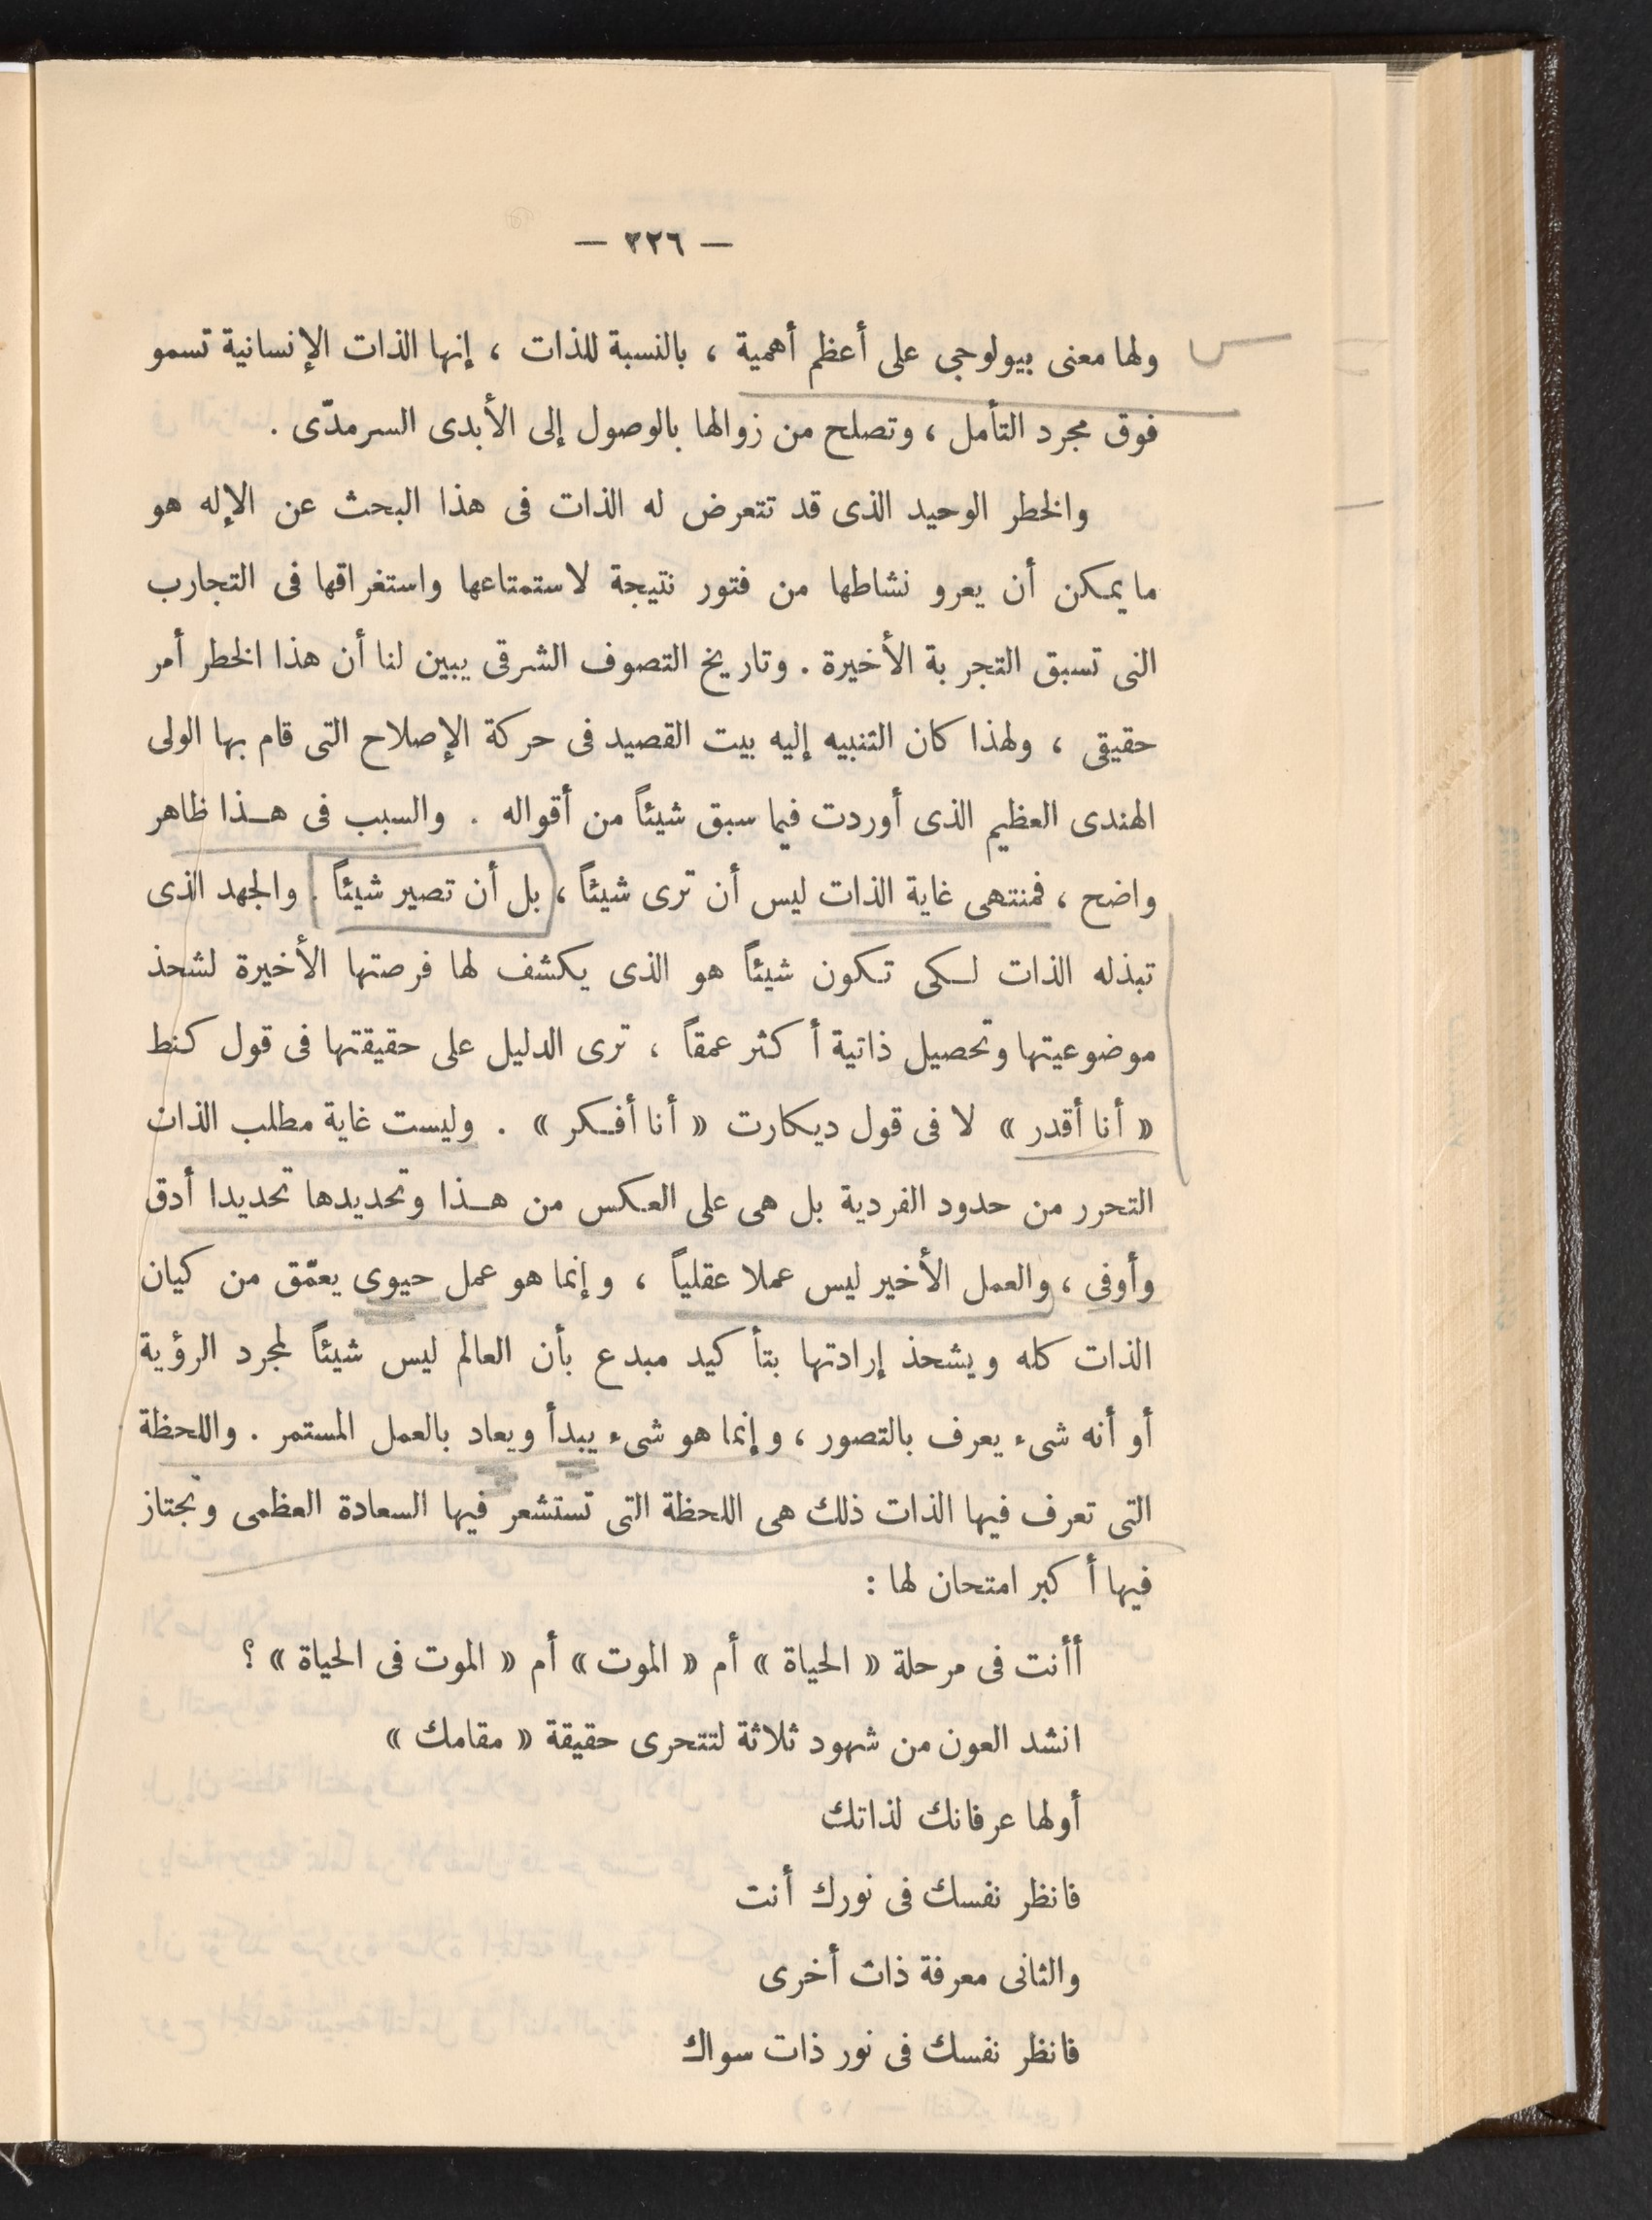 — ٢٢٦ —
ولها معنى بيولوجى على أعظم أهمية ، بالنسبة للذات ، إنها الذات الإنسانية تسمو
فوق مجرد التأمل ، وتصلح من زوالها بالوصول إلى الأبدى السرمدّى .
والخطر الوحيد الذى قد تتعرض له الذات فى هذا البحث عن الإله هو
ما يمكن أن يعرو نشاطها من فتور نتيجة لاستمتاعها واستغراقها فى التجارب
التى تسبق التجربة الأخيرة . وتاريخ التصوف الشرقى يبين لنا أن هذا الخطر أمر
حقيقى ، ولهذا كان التنبيه إليه بيت القصيد فى حركة الإصلاح التى قام بها الولى
الهندى العظيم الذى أوردت فيما سبق شيئاً من أقواله . والسبب فى هذا ظاهر
واضح ، فمنتهى غاية الذات ليس أن ترى شيئاً ، بل أن تصير شيئاً . والجهد الذى
تبذله الذات لكى تكون شيئاً هو الذى يكشف لها فرصتها الأخيرة لشحذ
موضوعيتها وتحصيل ذاتية أكثر عمقاً ، ترى الدليل على حقيقتها فى قول كنط
« أنا أقدر » لا فى قول ديكارت « أنا أفكر » . وليست غاية مطلب الذات
التحرر من حدود الفردية بل هى على العكس من هذا وتحديدها تحديدا أدق
وأوفى ، والعمل الأخير ليس عملا عقلياً ، وإنما هو عمل حيوى يعمّق من كيان
الذات كله ويشحذ إرادتها بتأكيد مبدع بأن العالم ليس شيئاً لمجرد الرؤية
أو أنه شىء يعرف بالتصور ، وإنما هو شىء يبدأ ويعاد بالعمل المستمر . واللحظة
التى تعرف فيها الذات ذلك هى اللحظة التى تستشعر فيها السعادة العظمى وتجتاز
فيها أكبر امتحان لها :
أأنت فى مرحلة « الحياة » أم « الموت » أم « الموت فى الحياة » ؟
انشد العون من شهود ثلاثة لتتحرى حقيقة « مقامك »
أولها عرفانك لذاتك
فانظر نفسك فى نورك أنت
والثانى معرفة ذات أخرى
فانظر نفسك فى نور ذات سواك